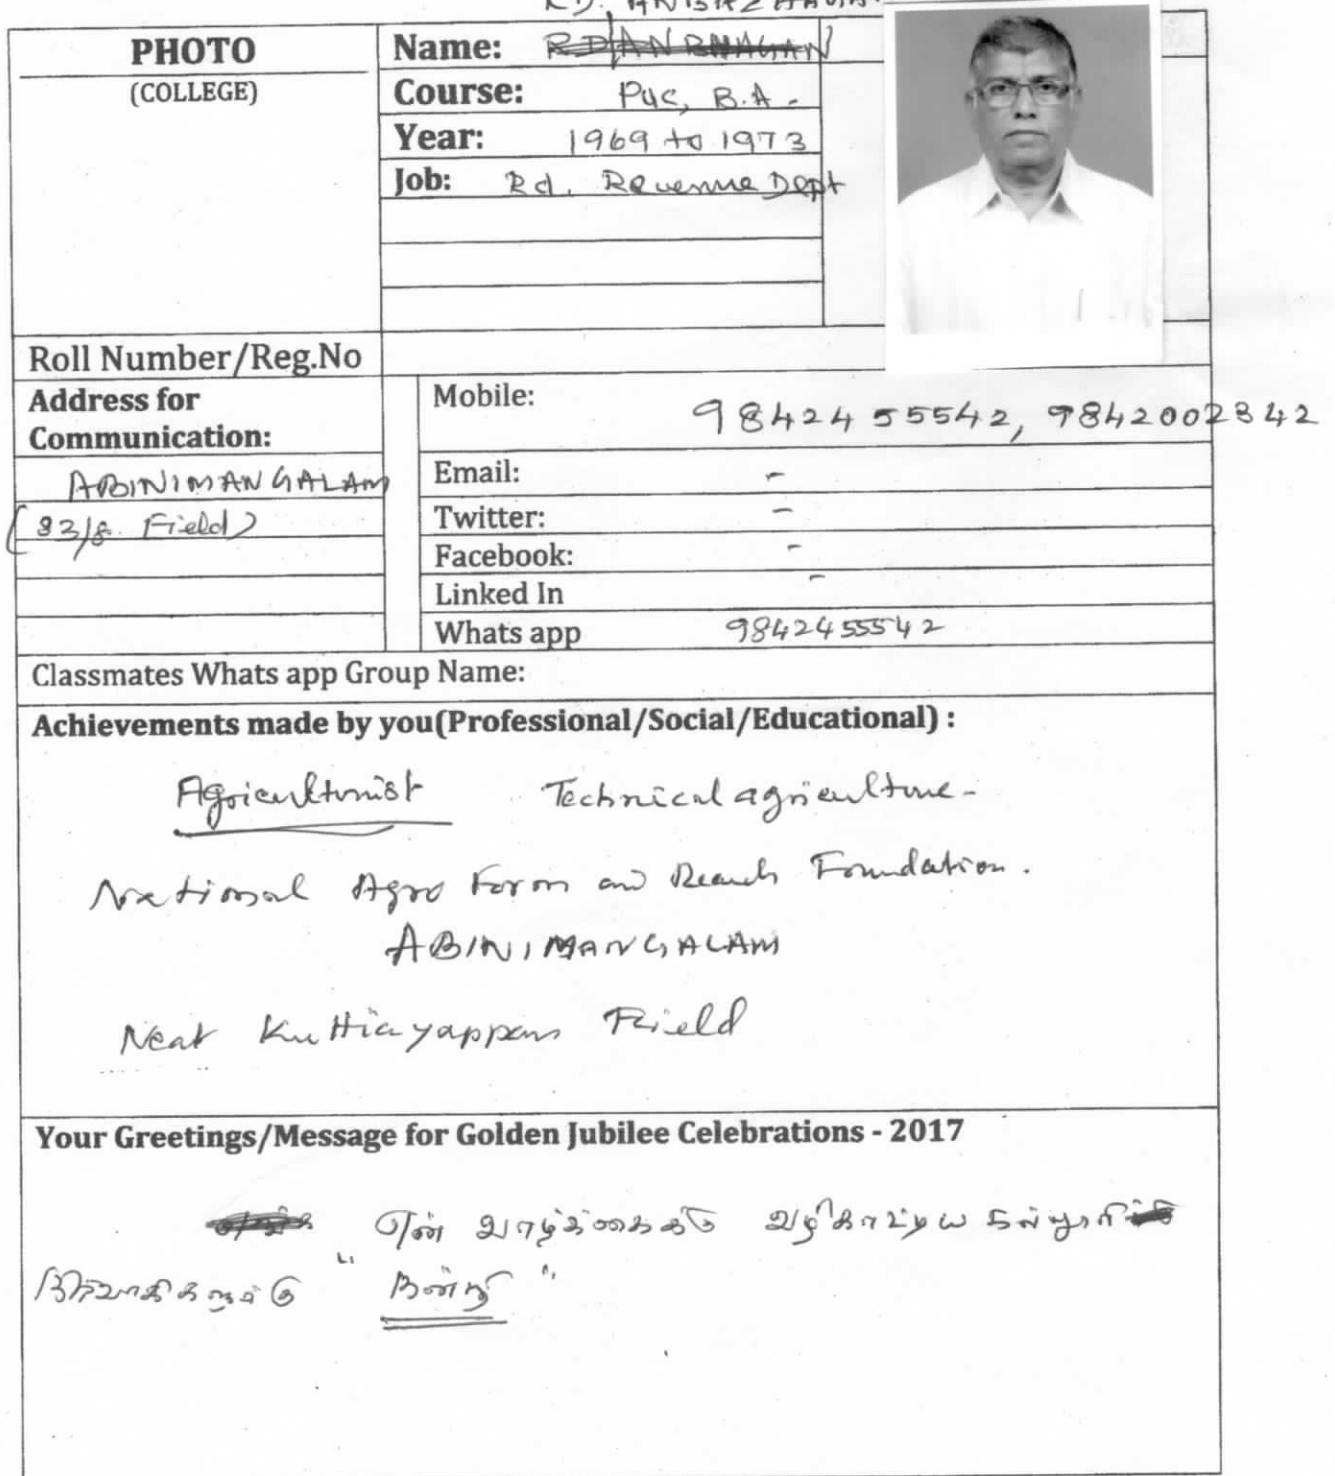 PHOTO
(COLLEGE)
Name:
Course: Puc, B.A.
Year: 1969 to 1973
Job: Rd. Revenue Dept
Roll Number/Reg.No
Address for
Communication:
ABINIMANGALAM
(83/8. Field)
Mobile: 9842455542, 9842002842
Email: -
Twitter: -
Facebook: -
Linked In -
Whats app 9842455542
Classmates Whats app Group Name:
Achievements made by you(Professional/Social/Educational) :
Agriculturist Technical agriculture-
National Agro Form and Reach Foundation.
ABINIMANGALAM
Near Kuttiayappan Field
Your Greetings/Message for Golden Jubilee Celebrations - 2017
என் வாழ்க்கைக்கு வழிகாட்டிய கல்லூரி
நிர்வாகிகளுக்கு "நன்றி"